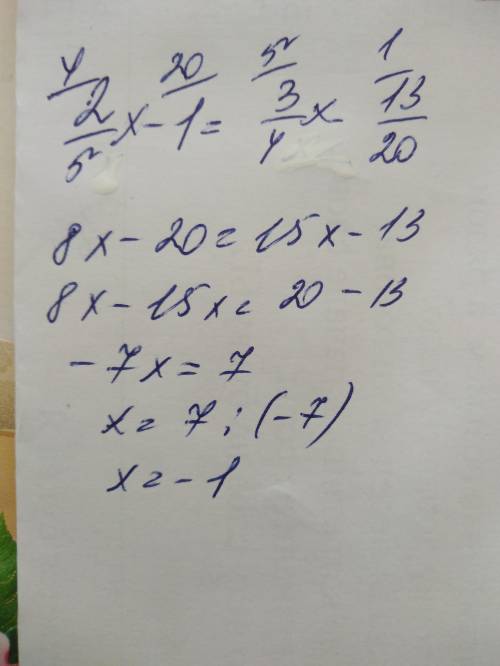 4 20 5 1
2/5 x - 1 = 3/4 x - 13/20
8x - 20 = 15x - 13
8x - 15x = 20 - 13
-7x = 7
x = 7 : (-7)
x = -1